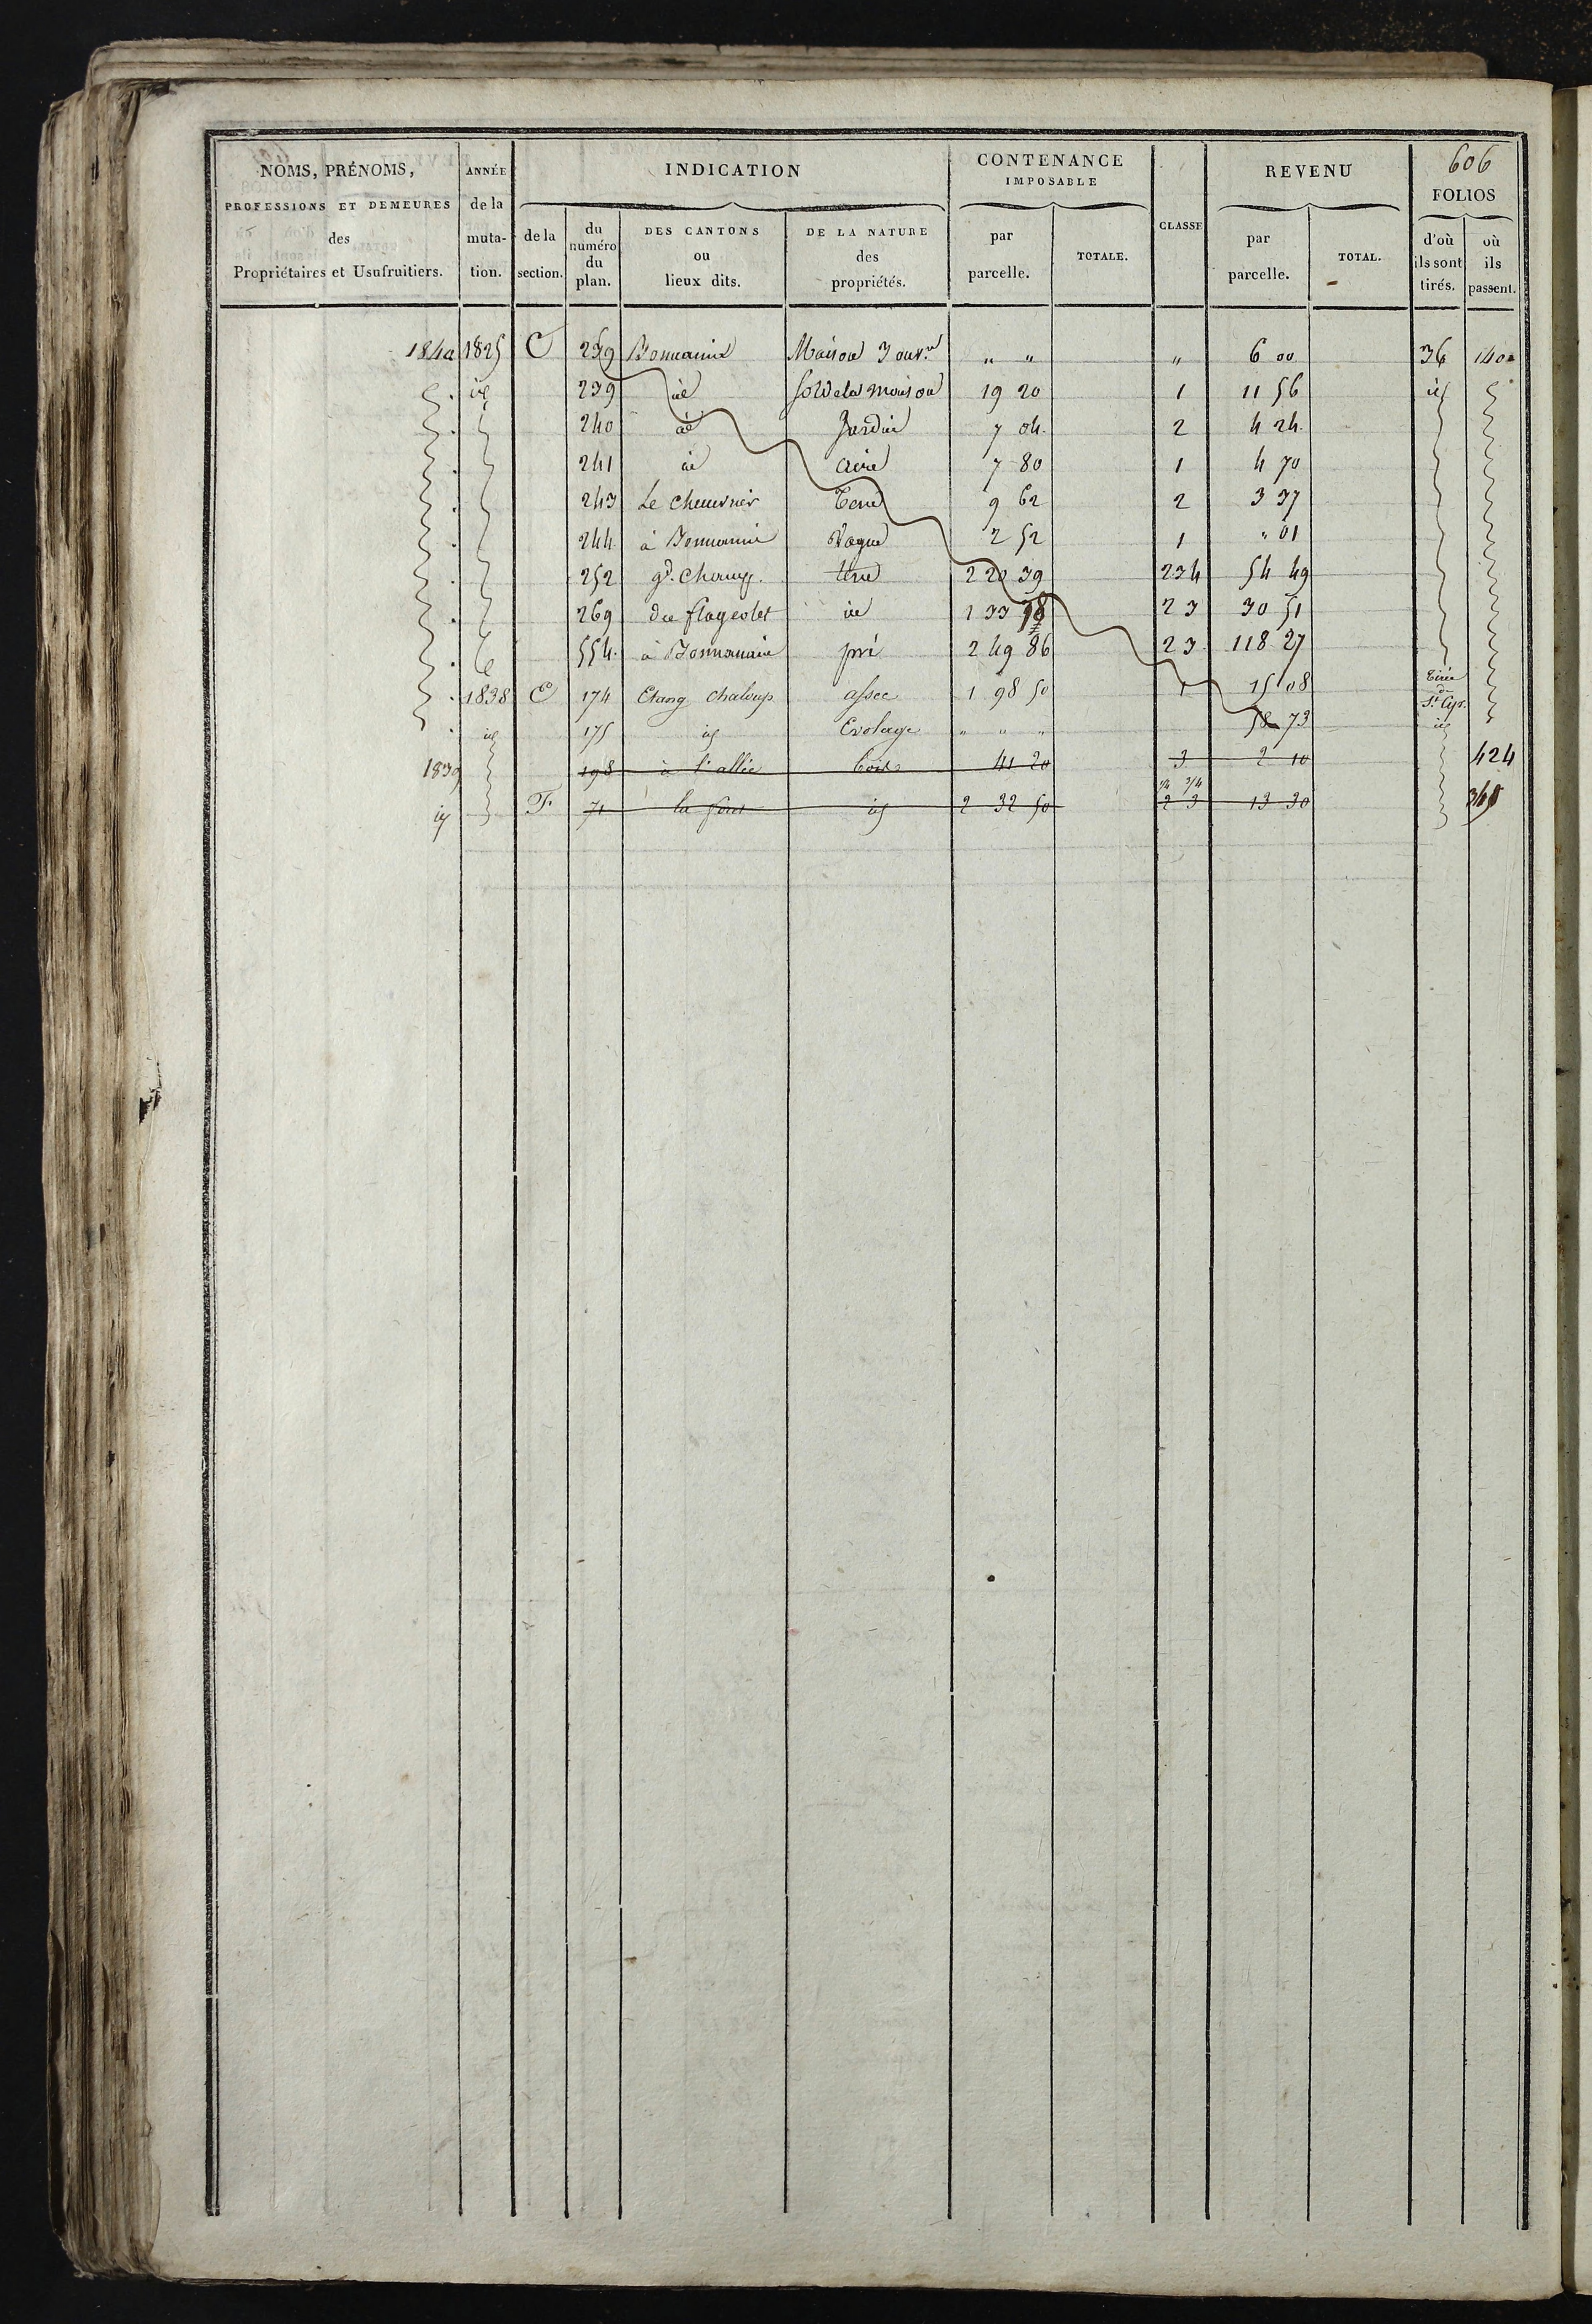 606
NOMS, PRÉNOMS, ANNÉE INDICATION CONTENANCE IMPOSABLE CLASSE REVENU FOLIOS
PROFESSIONS ET DEMEURES des Propriétaires et Usufruitiers. de la mutation. de la section. du numéro du plan. DES CANTONS ou lieux dits. DE LA NATURE des propriétés. par parcelle. TOTALE. par parcelle. TOTAL. d'où ils sont tirés. où ils passent.
1825 C 239 Maison 3 ouv.re " " " 6 00 36 140
id 239 id sol de la maison 19 20 1 11 56 id
240 id Jardin 7 04 2 4 24
241 id aire 7 80 1 4 70
243 Le Chenevier terre 9 62 2 3 37
244 à Vague 2 52 1 " 01
252 gd. Champ. terre 2 20 39 234 54 49
269 du flageolet id 1 33 23 30 51
554 à pré 2 49 86 23 118 27
1838 E 174 Etang chaloup assec 1 98 50 1 15 08 Tirée de St Cyr.
id 175 id Evolage " " " 58 73 id
1839 198 à l'allée bois 41 20 3 2 10 424
id F. 71 id 2 32 50 1/4 3/4 2 3 13 30